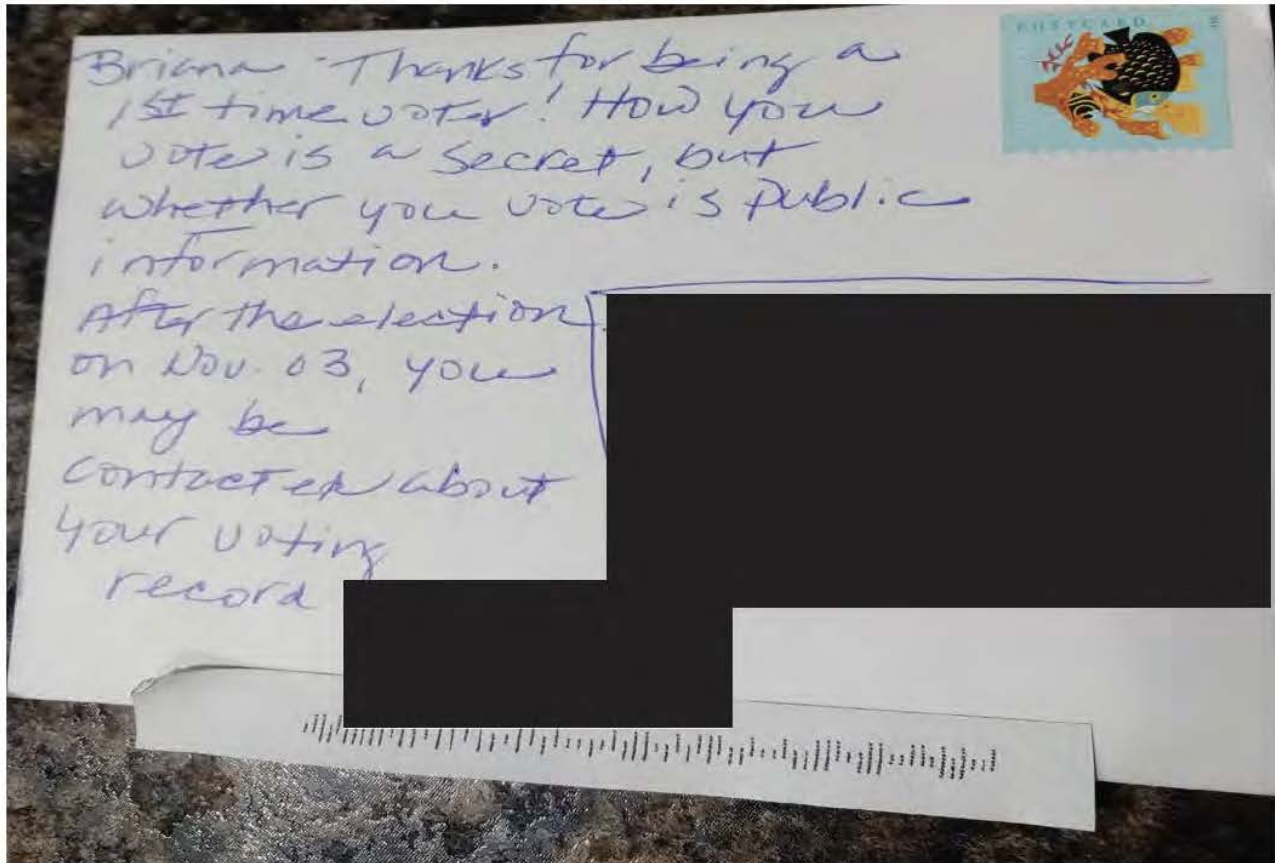 Briana - Thanks for being a
1st time voter! How you
vote is a secret, but
whether you vote is public
information.
After the election
on Nov. 03, you
may be
contacted about
your voting
record
POSTCARD